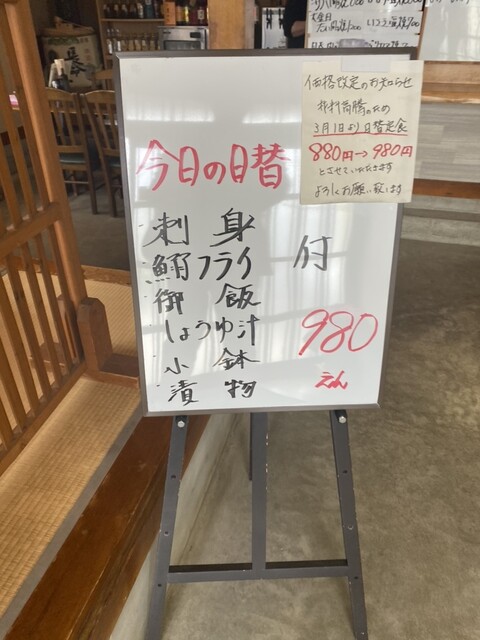 価格改定のお知らせ
材料高騰のため
3月1日より日替定食
880円→980円
とさせていただきます
よろしくお願い致します
今日の日替
刺身
鯒フライ 付
御飯
しょうゆ汁
小鉢
漬物
980
えん